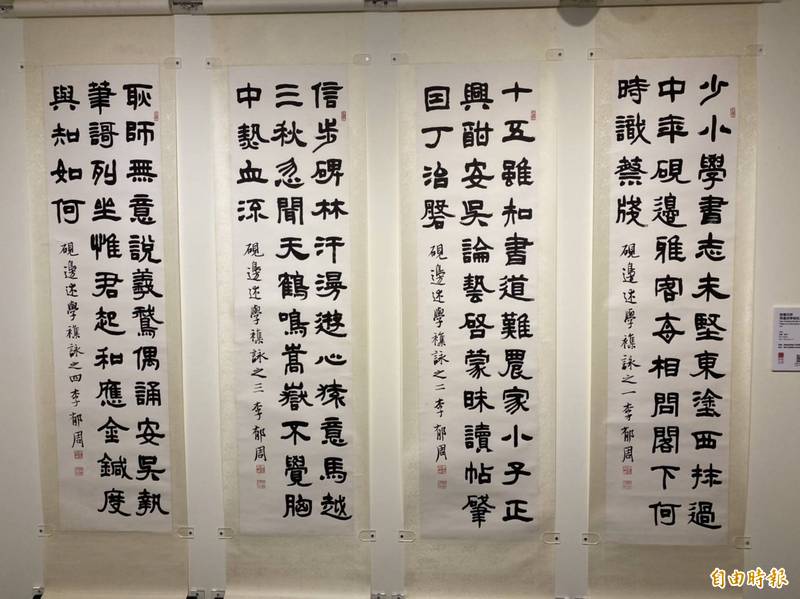 少小學書志未堅東塗西抹過
中年硯邊雅客每相問閣下何
時識蔡牋
硯邊述學襍詠之一李郁周
十五雖知書道難農家小子正
興酣安吳論藝啓蒙昧讀帖肇
因丁治磐
硯邊述學襍詠之二李郁周
信步碑林汗漫遊心猿意馬越
三秋忽聞天鶴鳴嵩嶽不覺胸
中熱血流
硯邊述學襍詠之三李郁周
恥師無意說羲鵞偶誦安吳執
筆謌列坐惟君起和應金鍼度
與知如何
硯邊述學襍詠之四李郁周
自由時報